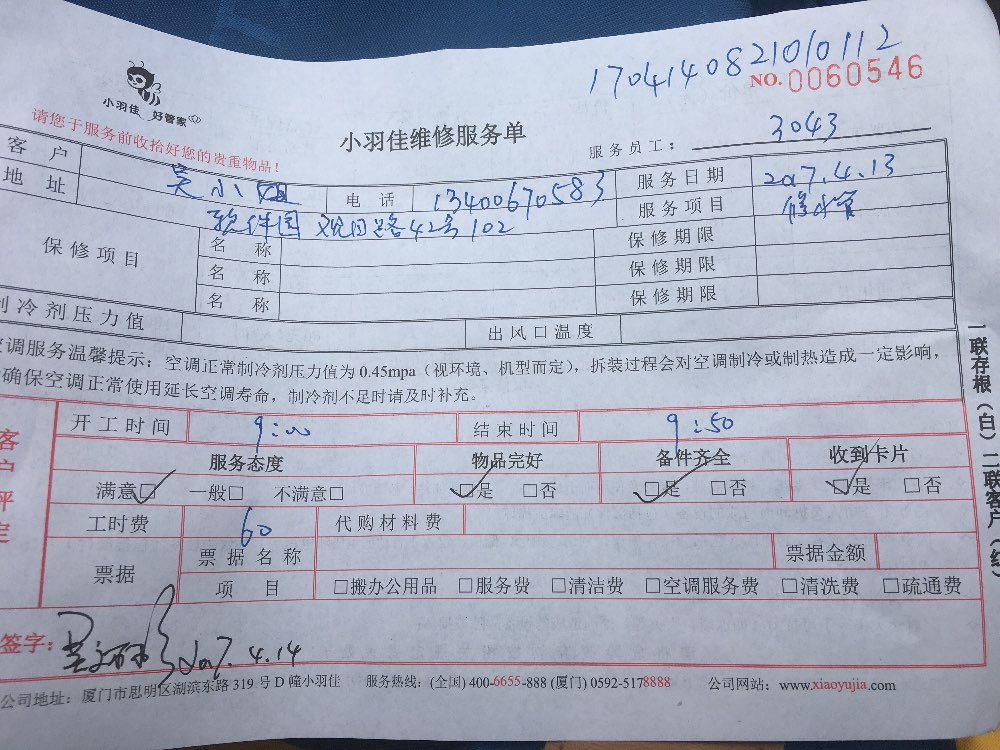 1704140821010112
NO.0060546
小羽佳 好管家
请您于服务前收拾好您的贵重物品！
小羽佳维修服务单
服务员工： 3043
客户 吴小姐 电话 13400670583 服务日期 2017.4.13
地址 软件园 观日路42号102 服务项目 修水管
保修项目 名称 保修期限
名称 保修期限
名称 保修期限
制冷剂压力值 出风口温度
空调服务温馨提示：空调正常制冷剂压力值为 0.45mpa（视环境、机型而定），拆装过程会对空调制冷或制热造成一定影响，
确保空调正常使用延长空调寿命，制冷剂不足时请及时补充。
客户评定
开工时间 9:00 结束时间 9:50
服务态度 物品完好 备件齐全 收到卡片
满意□ 一般□ 不满意□ □是 □否 □是 □否 □是 □否
工时费 60 代购材料费
票据 票据名称 票据金额
项目 □搬办公用品 □服务费 □清洁费 □空调服务费 □清洗费 □疏通费
签字： 2017.4.14
公司地址：厦门市思明区湖滨东路 319 号 D 幢小羽佳 服务热线：(全国) 400-6655-888 (厦门) 0592-5178888 公司网站：www.xiaoyujia.com
一联存根（白）二联客户（红）